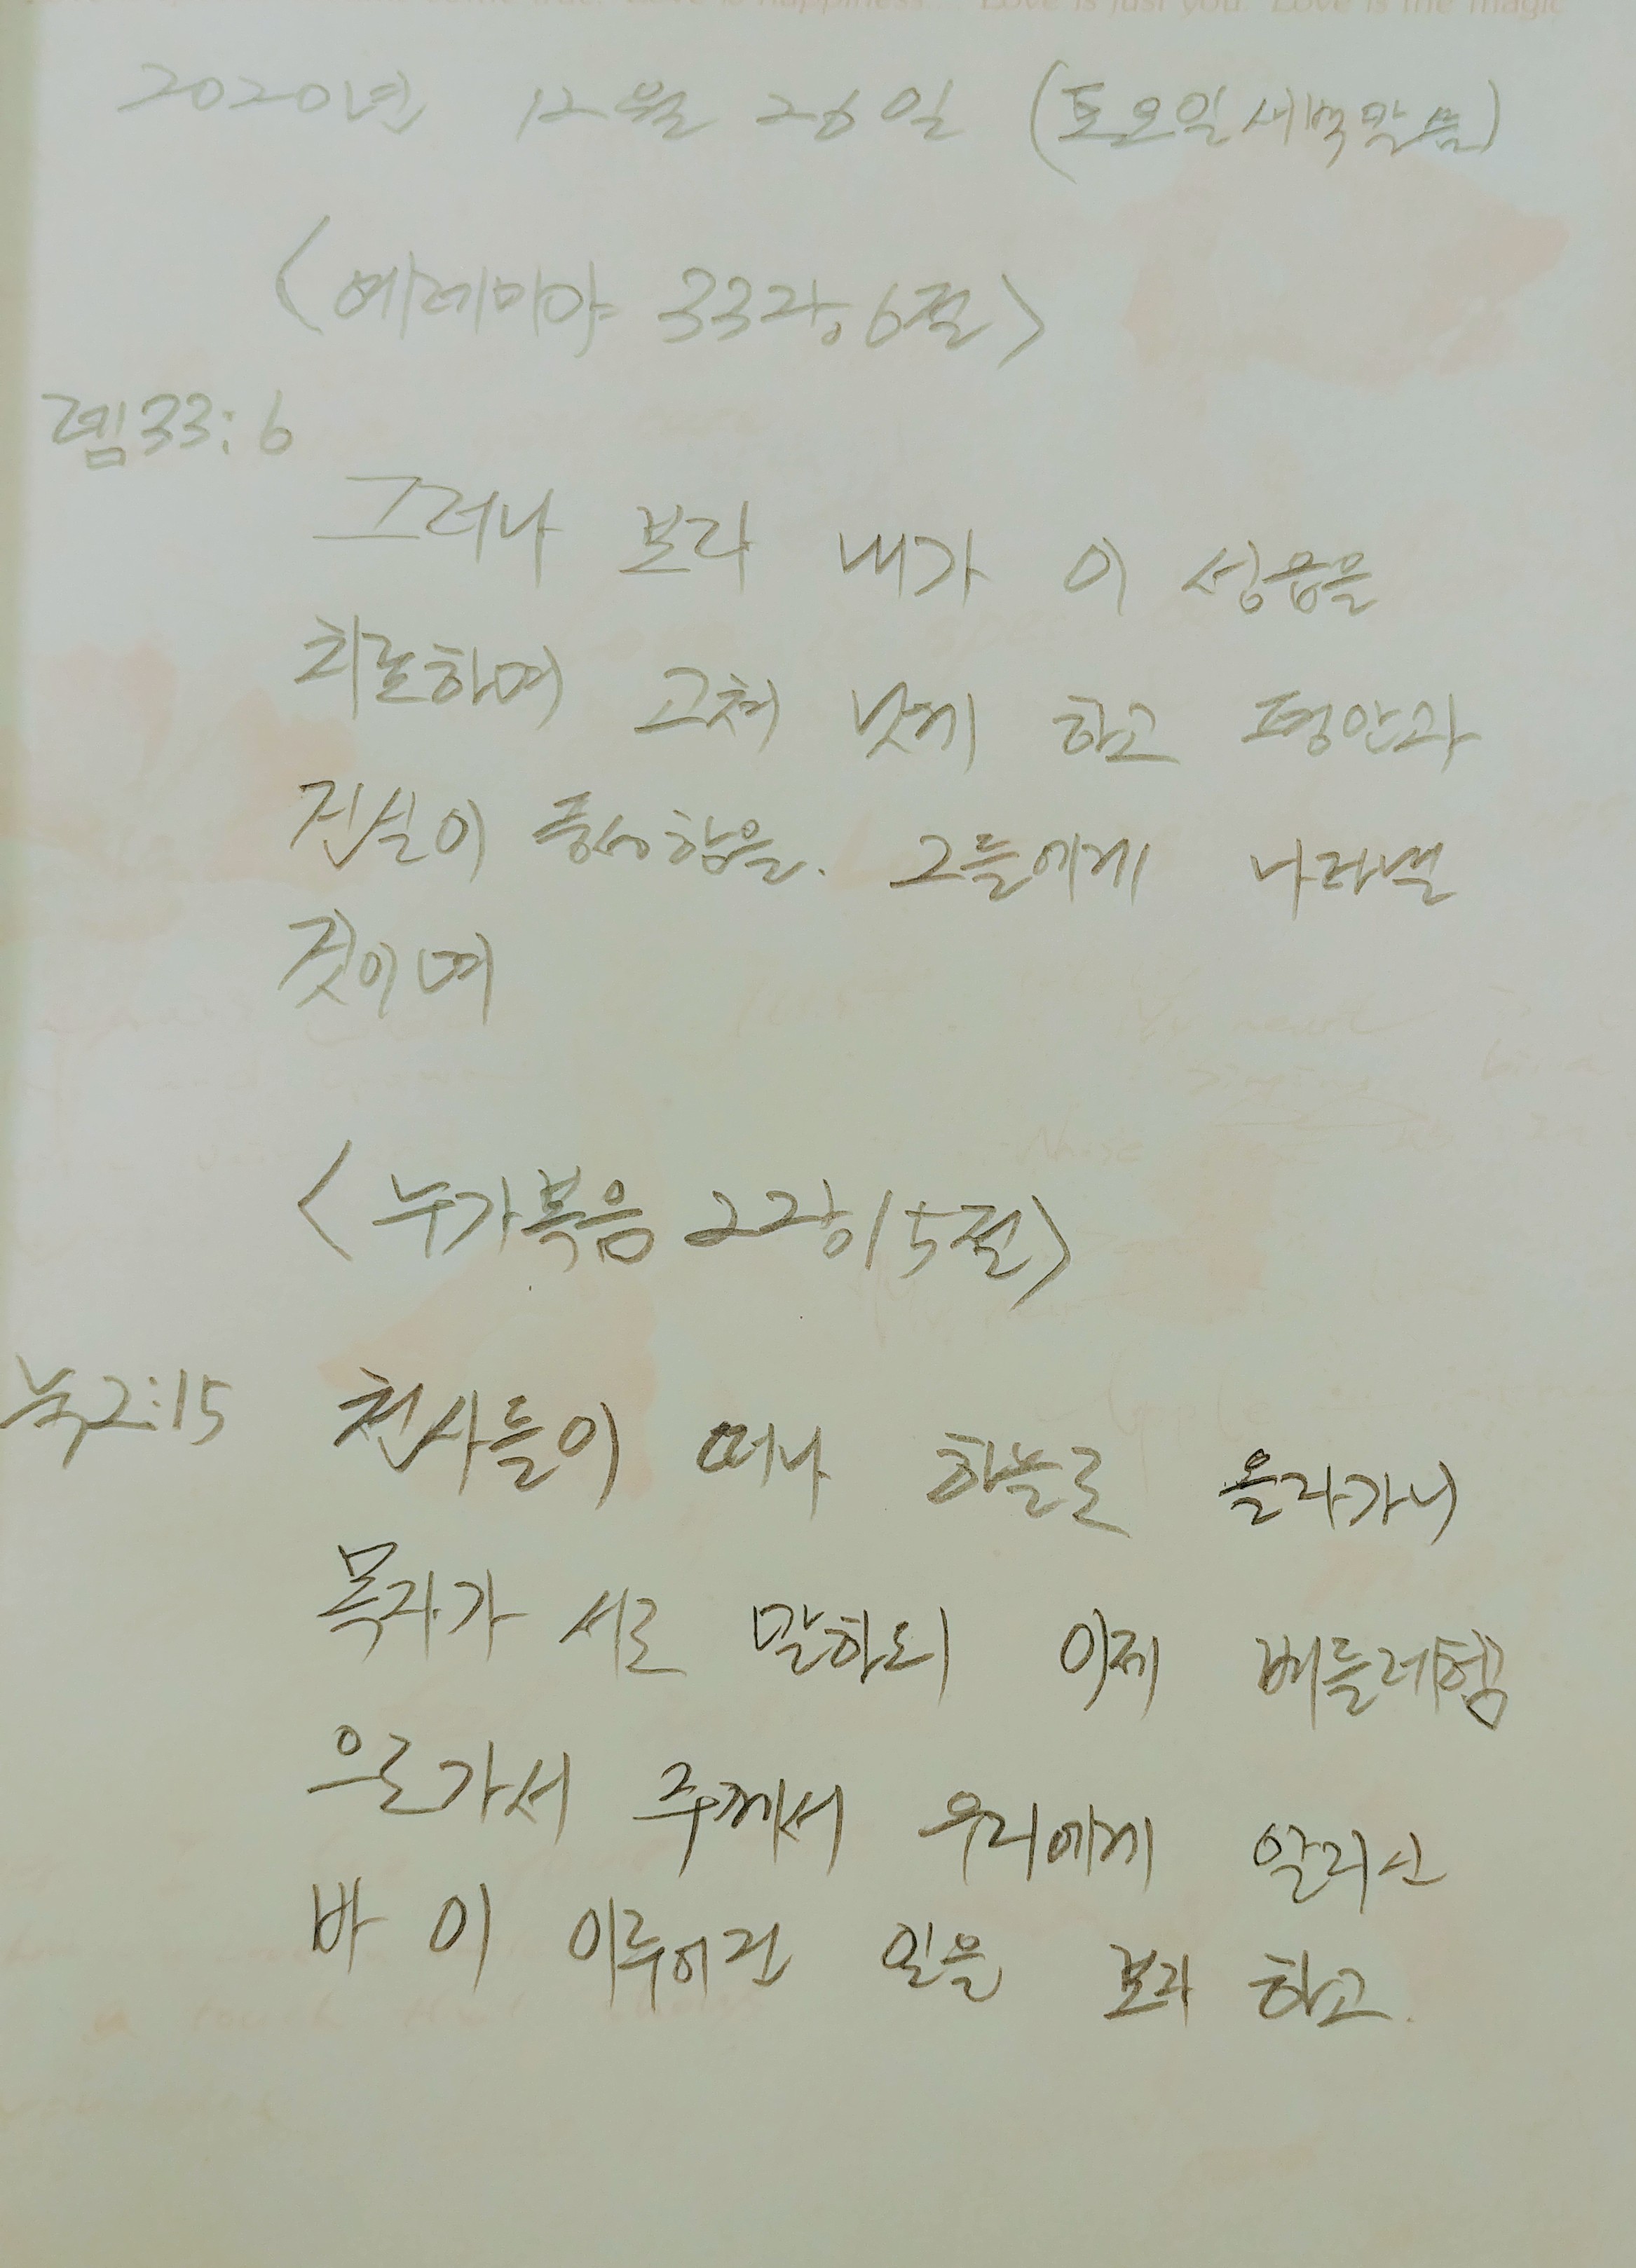 Love is just you. Love is the magic
2020년 12월 26일 (토요일새벽말씀)
<예레미야 33장6절>
렘33:6
그러나 보라 내가 이 성읍을
치료하며 고쳐 낫게 하고 평안과
진실이 풍성함을. 그들에게 나타낼
것이며
<누가복음 2장15절>
눅2:15 천사들이 떠나 하늘로 올라가니
목자가 서로 말하되 이제 베들레헴
으로가서 주께서 우리에게 알리신
바 이 이루어진 일을 보자 하고.